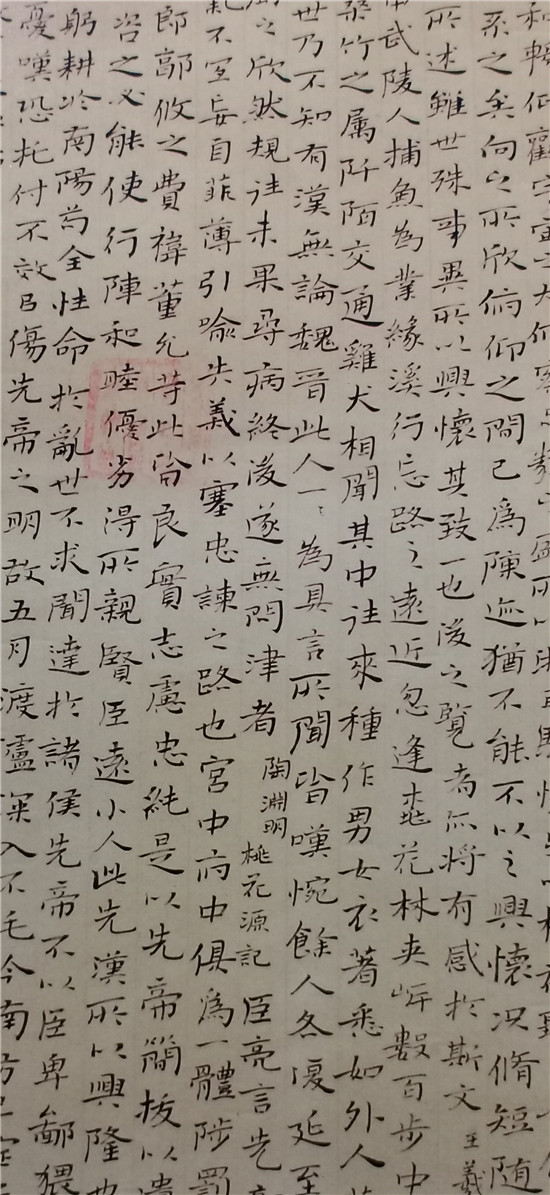 和暢仰觀宇宙之大
系之矣向之所欣俯仰之間已為陳迹猶不能不以之興懷况脩短隨
所述雖世殊事異所以興懷其致一也後之覽者亦將有感於斯文 王羲
武陵人捕魚為業緣溪行忘路之遠近忽逢桃花林夾岸數百步中
桑竹之属阡陌交通雞犬相聞其中往來種作男女衣著悉如外人
世乃不知有漢無論魏晉此人一〻為具言所聞皆嘆惋餘人各復延至
之欣然規往未果尋病終後遂無問津者 陶淵明 桃花源記 臣亮言先
亂不宜妄自菲薄引喻失義以塞忠諫之路也宮中府中俱為一體陟罰
郎郭攸之費禕董允等此皆良實志慮忠純是以先帝簡拔以遺
咨之必能使行陣和睦優劣得所親賢臣遠小人此先漢所以興隆也
躬耕於南陽苟全性命於亂世不求聞達於諸侯先帝不以臣卑鄙猥
憂嘆恐托付不效以傷先帝之明故五月渡瀘深入不毛今南方已定